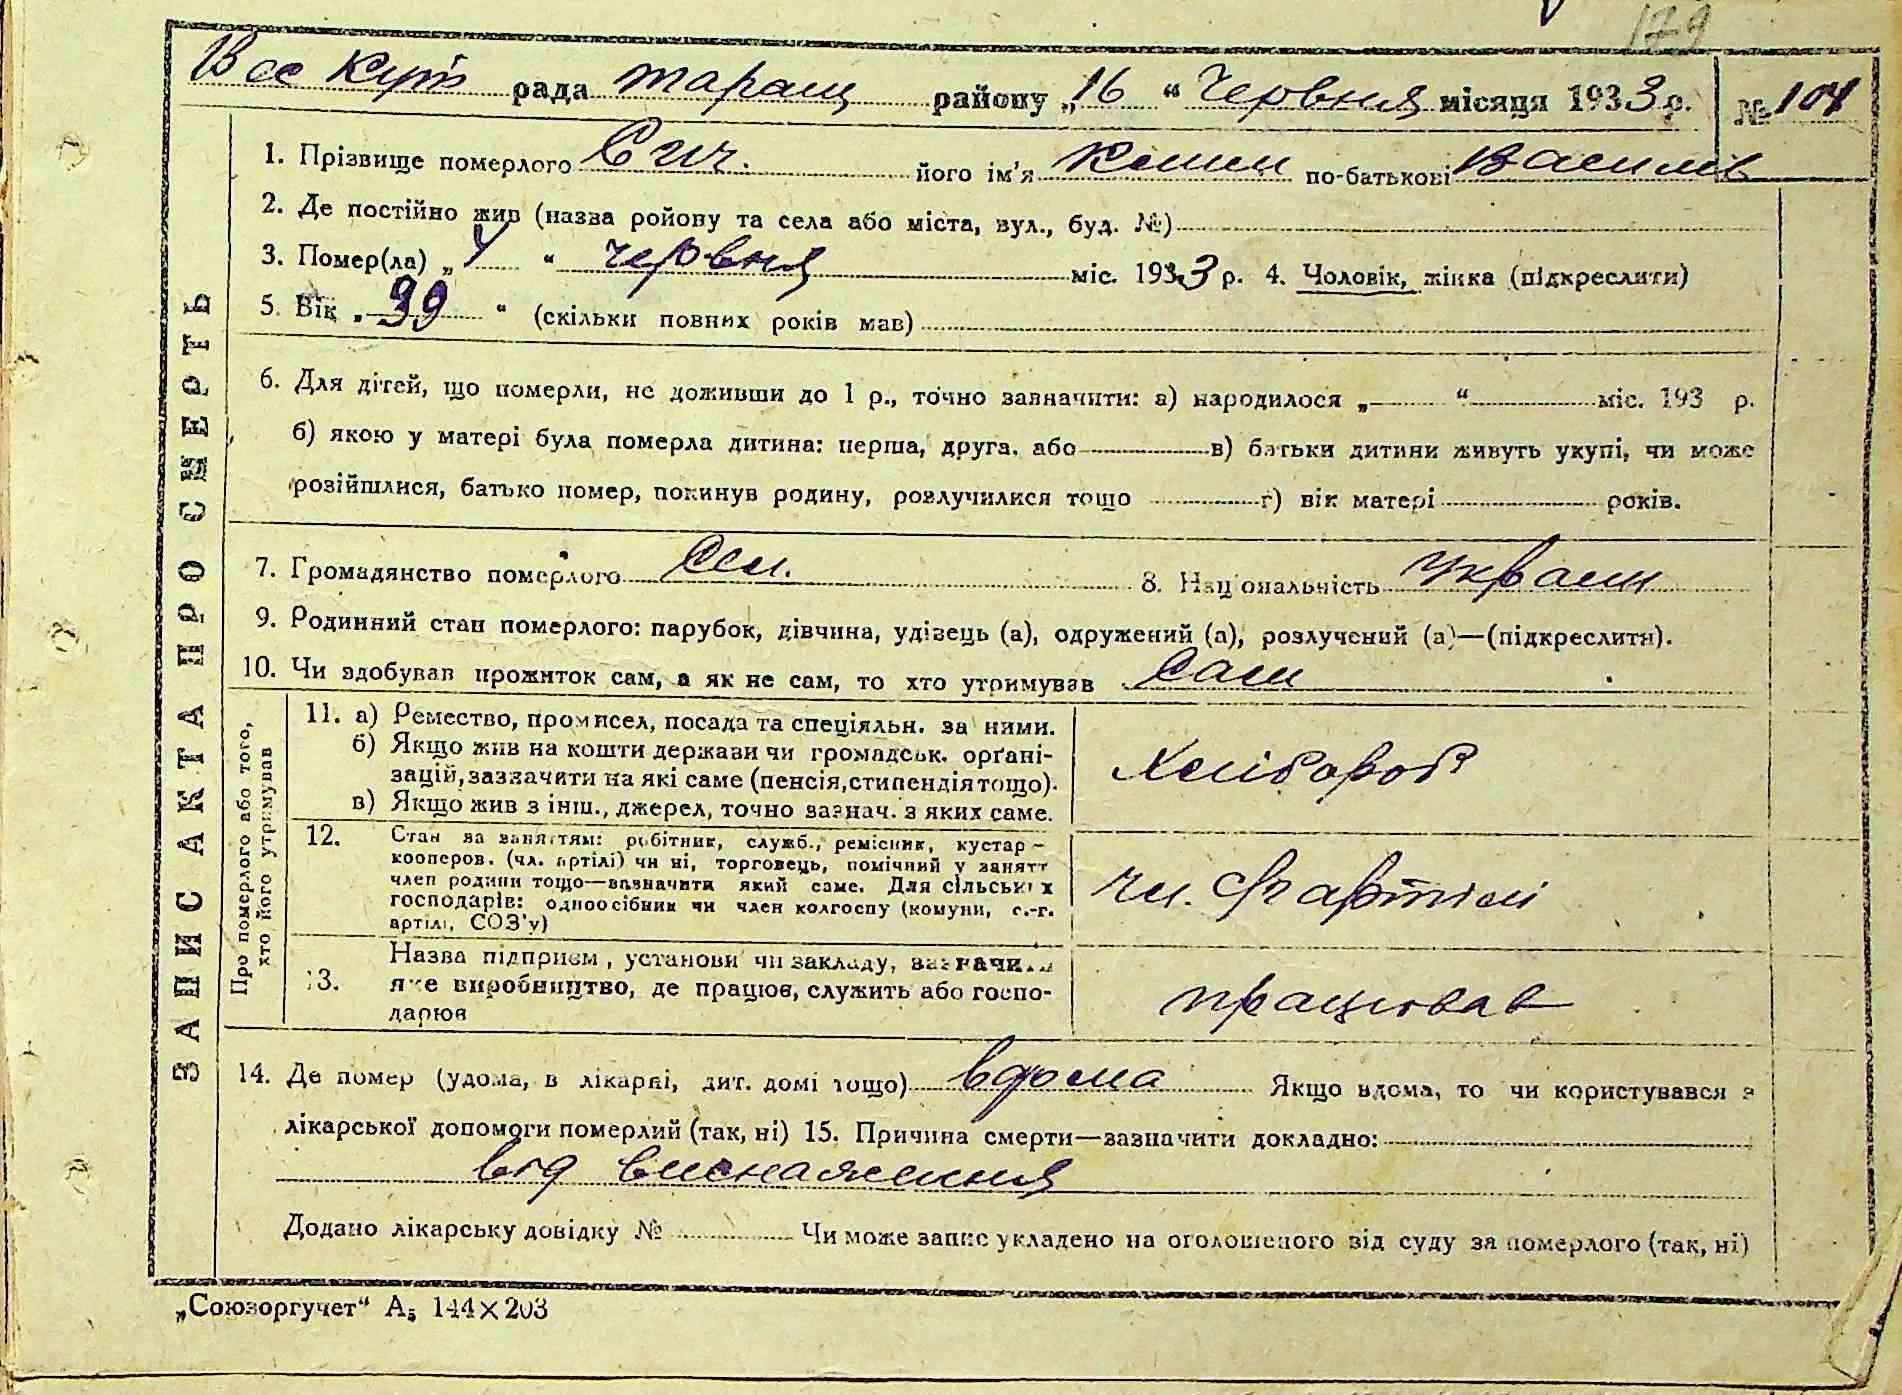 179
рада Таращ району „16“ Червня місяця 1933 р. № 104
1. Прізвище померлого Сич. його ім'я по-батькові Василів
2. Де постійно жив (назва ройову та села або міста, вул., буд. №)
3. Помер(ла) „4“ червня міс. 1933 р. 4. Чоловік, жінка (підкреслити)
5. Вік „39“ (скільки повних років мав)
6. Для дітей, що померли, не доживши до 1 р., точно зазначити: а) народилося „ “ міс. 193 р.
б) якою у матері була померла дитина: перша, друга, або в) батьки дитини живуть укупі, чи може
розійшлися, батько помер, покинув родину, розлучилися тощо г) вік матері років.
7. Громадянство померлого 8. Національність Україн
9. Родинний стан померлого: парубок, дівчина, удівець (а), одружений (а), розлучений (а)—(підкреслити).
10. Чи здобував прожиток сам, а як не сам, то хто утримував сам
ЗАПИС АКТА ПРО СМЕРТЬ
Про померлого або того,
хто його утримував
11. а) Ремество, промисел, посада та спеціяльн. за ними.
б) Якщо жив на кошти держави чи громадськ. орґані-
зацій, зазначити на які саме (пенсія, стипендія тощо).
в) Якщо жив з інш., джерел, точно зазнач. з яких саме.
Хлібороб
12. Стан за заняттям: робітник, служб., ремісник, кустар –
кооперов. (чл. артілі) чи ні, торговець, помічний у занятт
член родини тощо—зазначити який саме. Для сільських
господарів: одноосібник чи член колгоспу (комуни, с.-г.
артілі, СОЗ'у)
чл. артілі
13. Назва підприєм, установи чи закладу, зазначити
яке виробництво, де працює, служить або госпо-
дарює
працював
14. Де помер (удома, в лікарні, дит. домі тощо) вдома Якщо вдома, то чи користувався з
лікарської допомоги померлий (так, ні) 15. Причина смерти—зазначити докладно:
від виснаження
Додано лікарську довідку № Чи може запис укладено на оголошеного від суду за померлого (так, ні)
„Союзоргучет“ А5 144×203